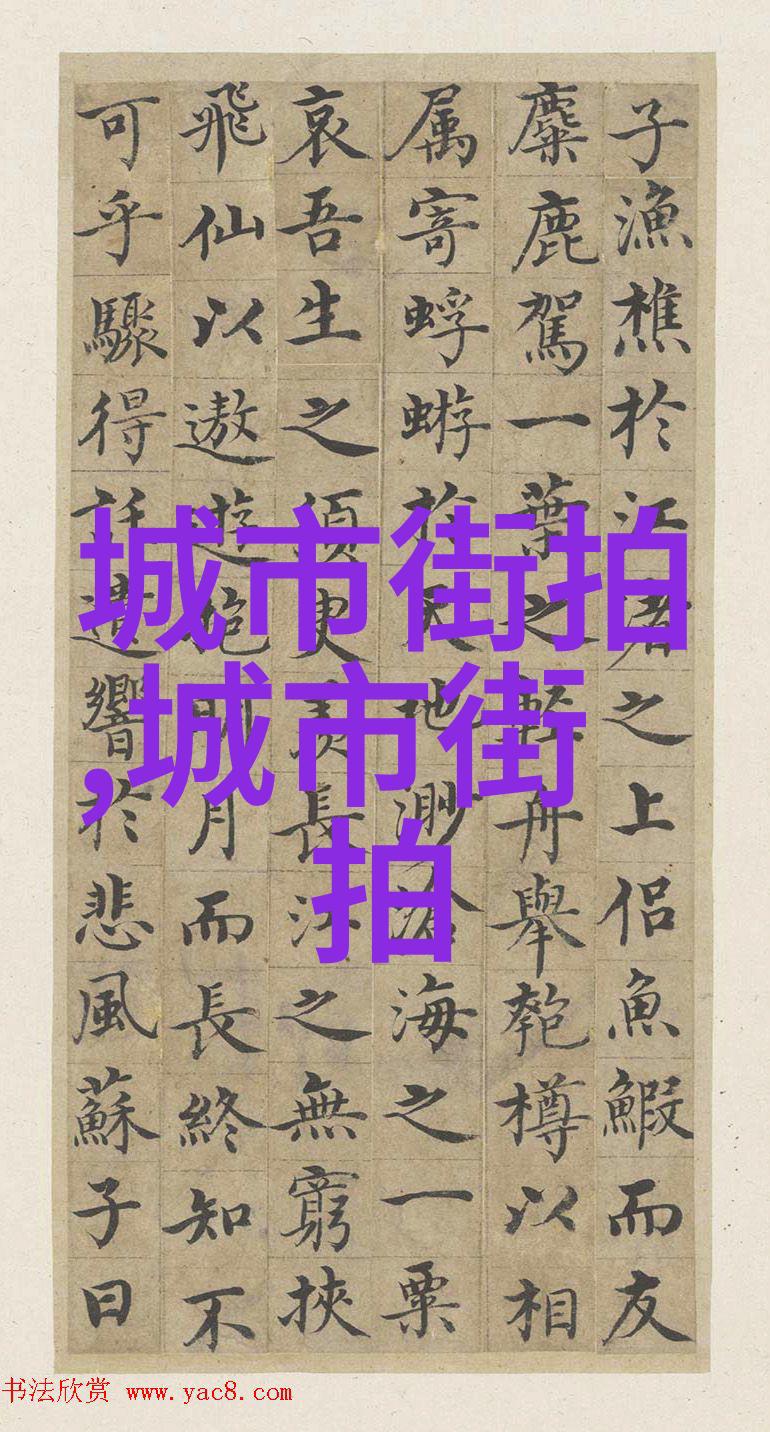 子漁樵於江渚之上侶魚鰕而友
麋鹿駕一葉之輕舟舉匏樽以相
属寄蜉蝣於天地渺滄海之一粟
哀吾生之須臾羨長江之無窮挾
飛仙以遨遊抱明月而長終知不
可乎驟得託遺響於悲風蘇子曰
城市街拍
,城市街
拍
书法欣赏 www.yac8.com